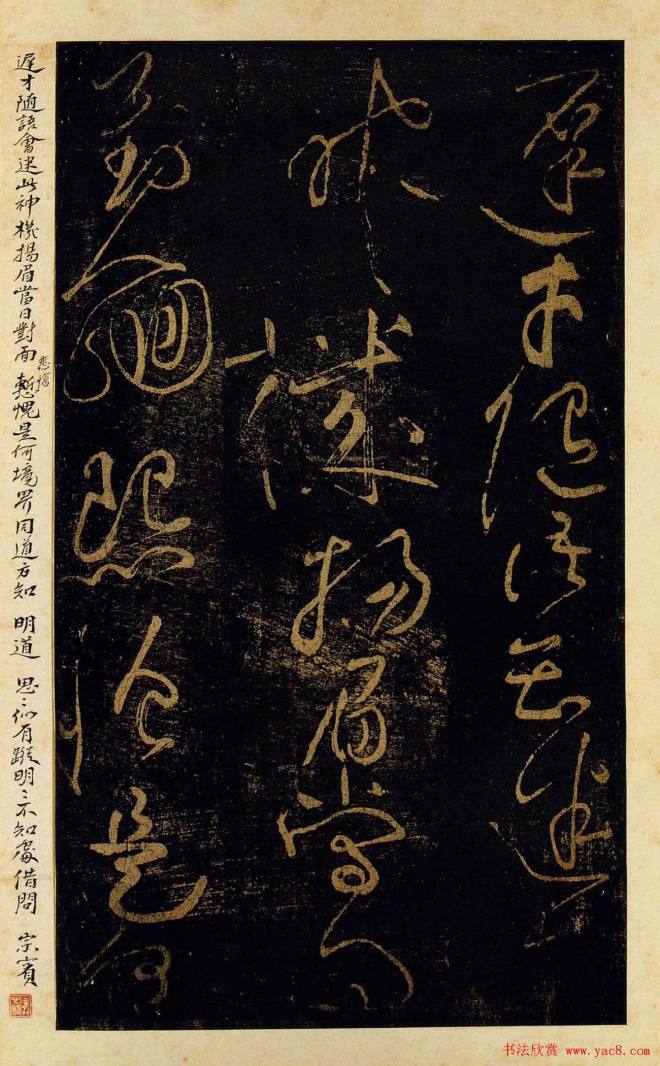 遲才隨語會迷此
神機揚眉當日
對面是何
遲才隨語會迷此神機揚眉當日對面慙愧是何境界同道方知 明道 思〻似有蹤明〻不知處借問 宗賓
悲愴
书法欣赏 www.yac8.com